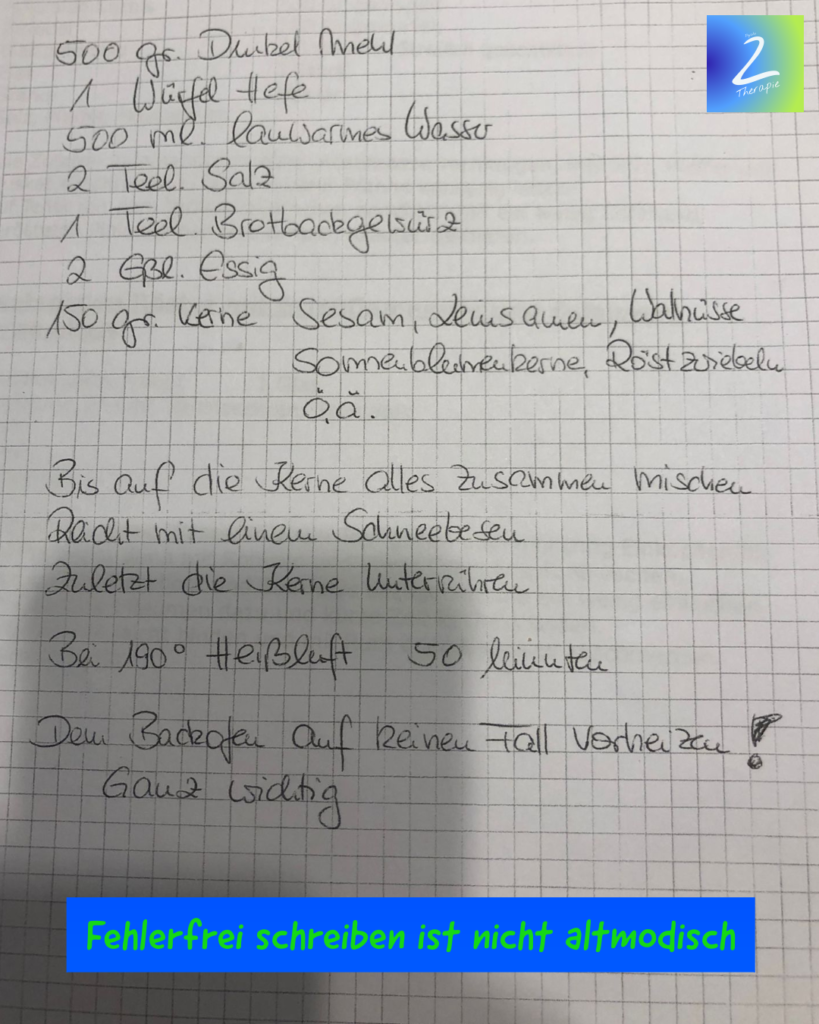 500 gr. Dinkel Mehl
1 Würfel Hefe
500 ml. lauwarmes Wasser
2 Teel. Salz
1 Teel. Brotbackgewürz
2 Eßl. Essig
150 gr. Kerne Sesam, Leinsamen, Walnüsse
Sonnenblumenkerne, Röstzwiebeln
O.ä.
Bis auf die Kerne alles zusammen mischen
Reicht mit einem Schneebesen
Zuletzt die Kerne Unterrühren
Bei 190° Heißluft 50 Minuten
Den Backofen auf keinen Fall Vorheizen!
Ganz wichtig
2
Therapie
Fehlerfrei schreiben ist nicht altmodisch